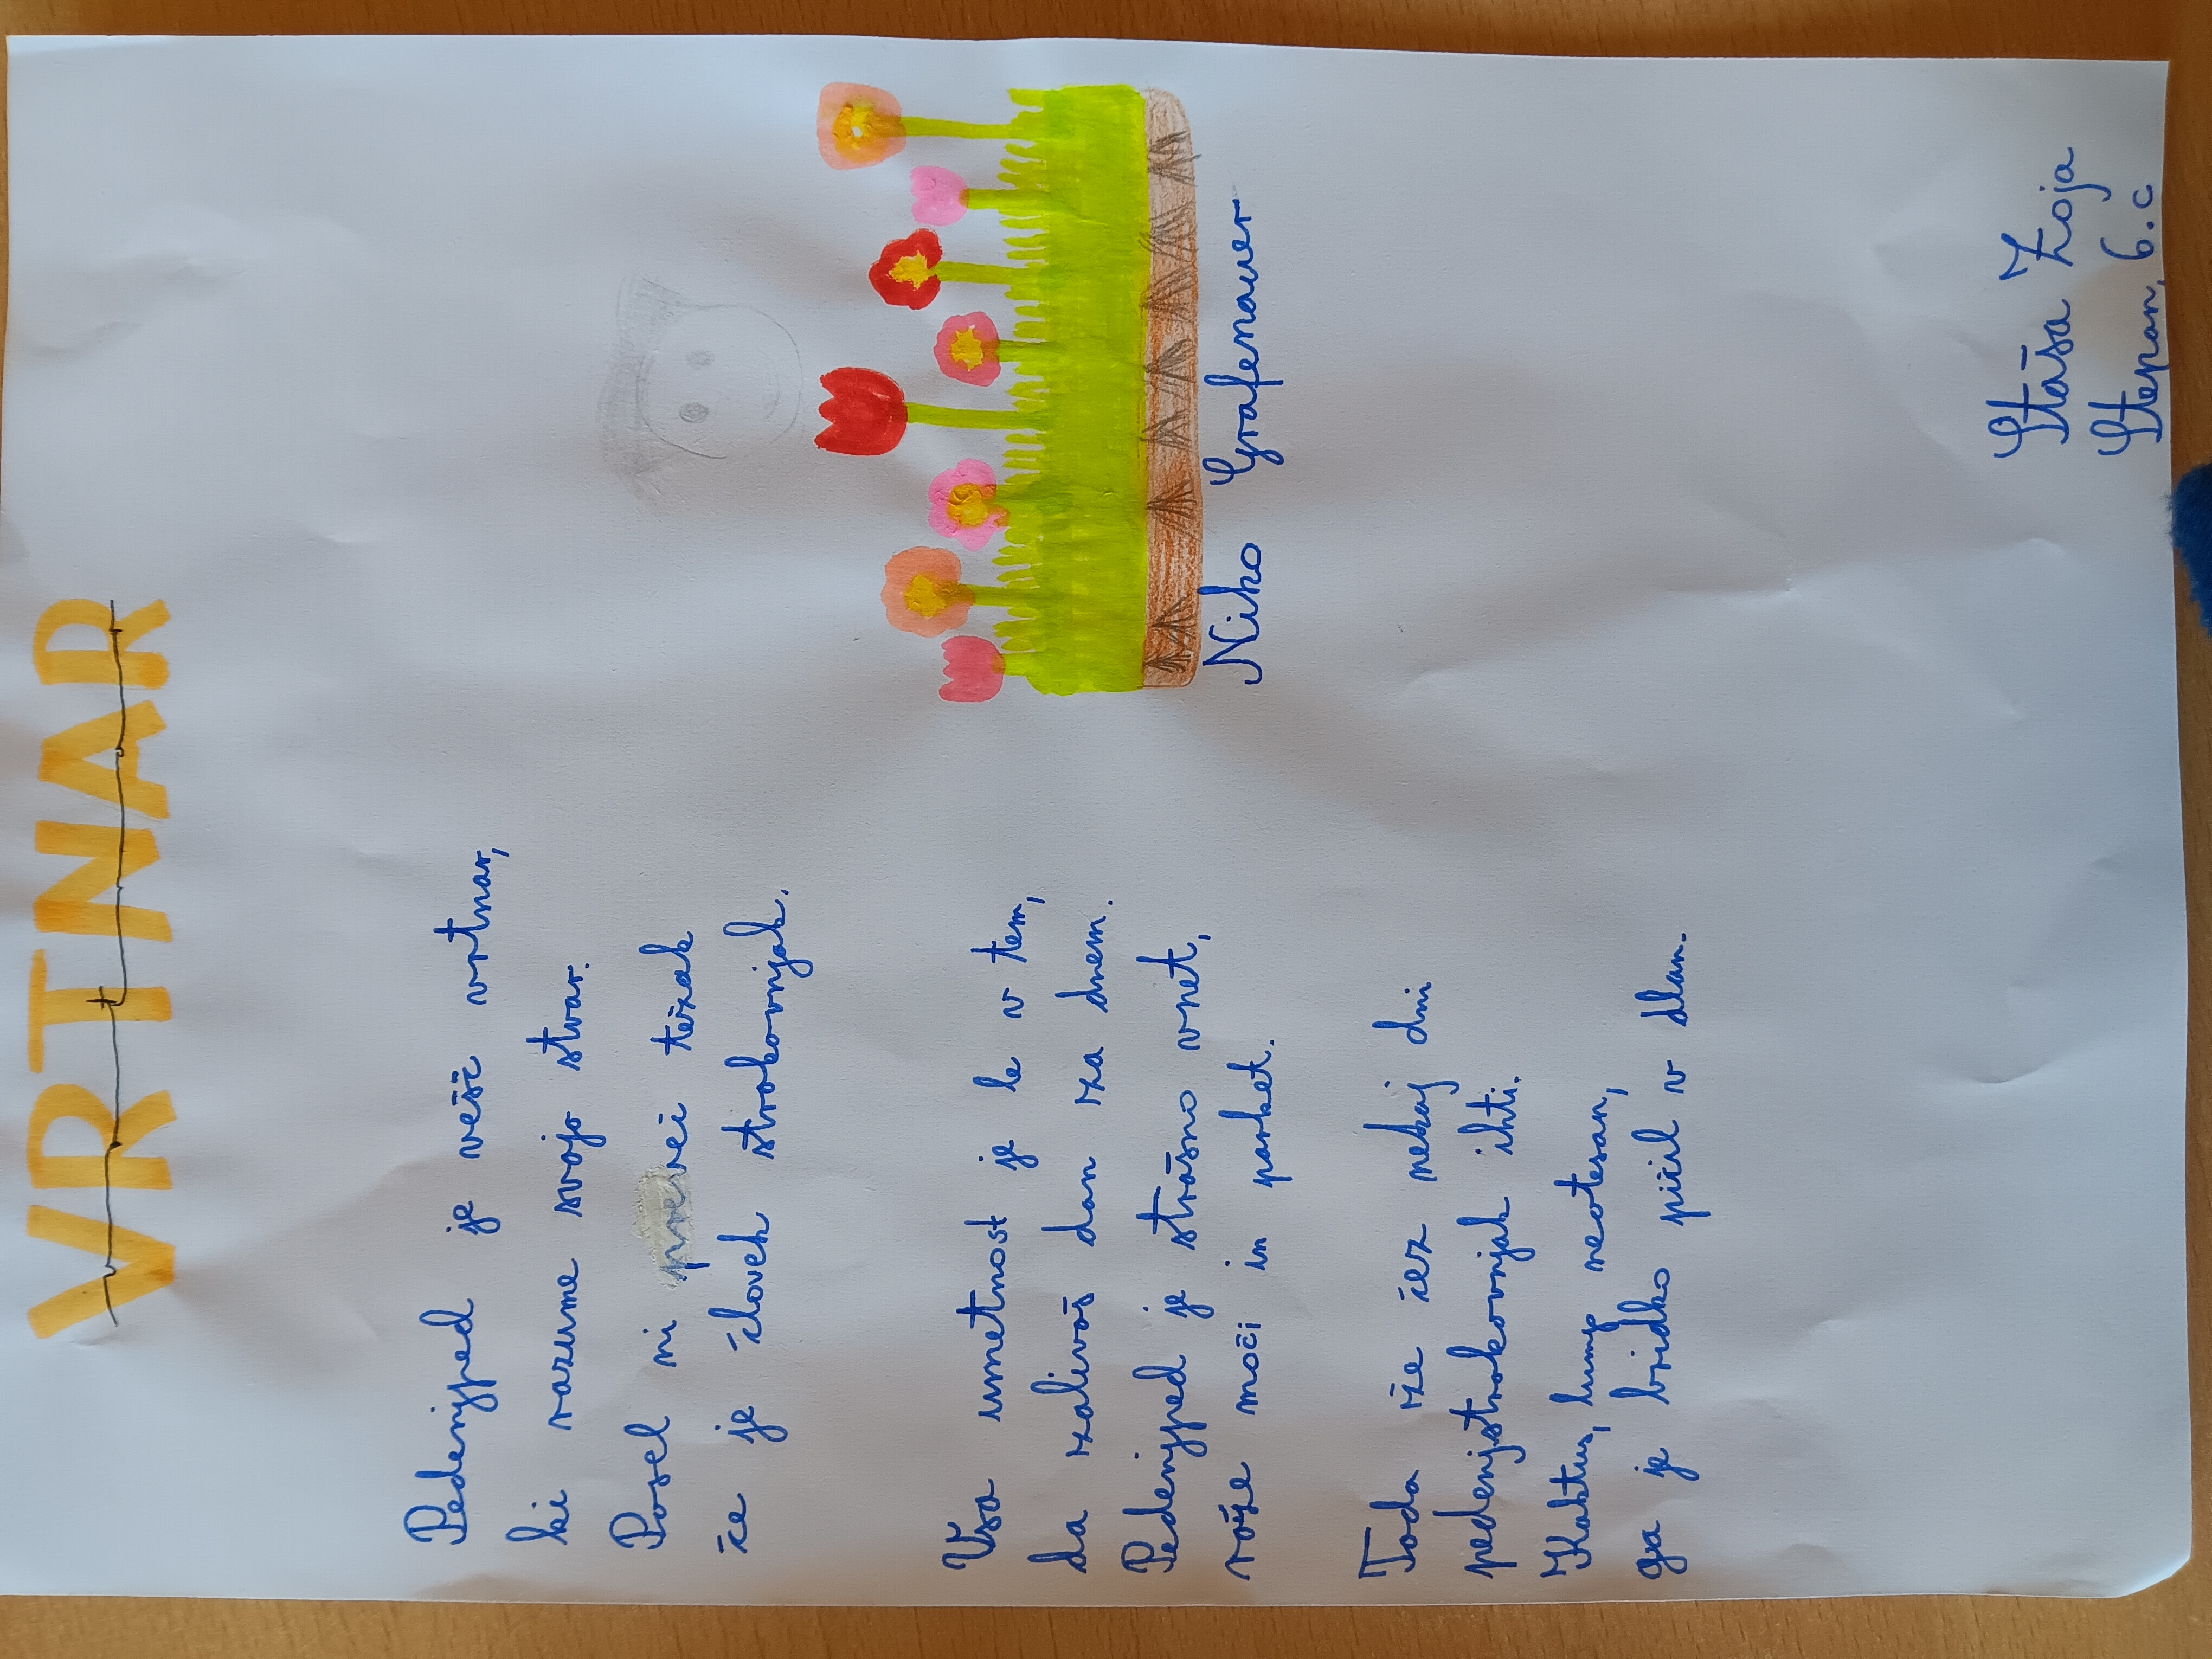 VRTNAR
Pedenjped je vešč vrtnar,
ki razume svojo stvar.
Posel ni preveč težak
če je človek strokovnjak.
Vsa umetnost je le v tem,
da zalivaš dan za dnem.
Pedenjped je strašno vnet,
rože moči in parket.
Toda že čez nekaj dni
pedenjstrokovnjak ihti.
Kaktus, lump neotesan,
ga je bridko pičil v dlan.
Niko Grafenauer
Staša Zoja
Stepan, 6.c